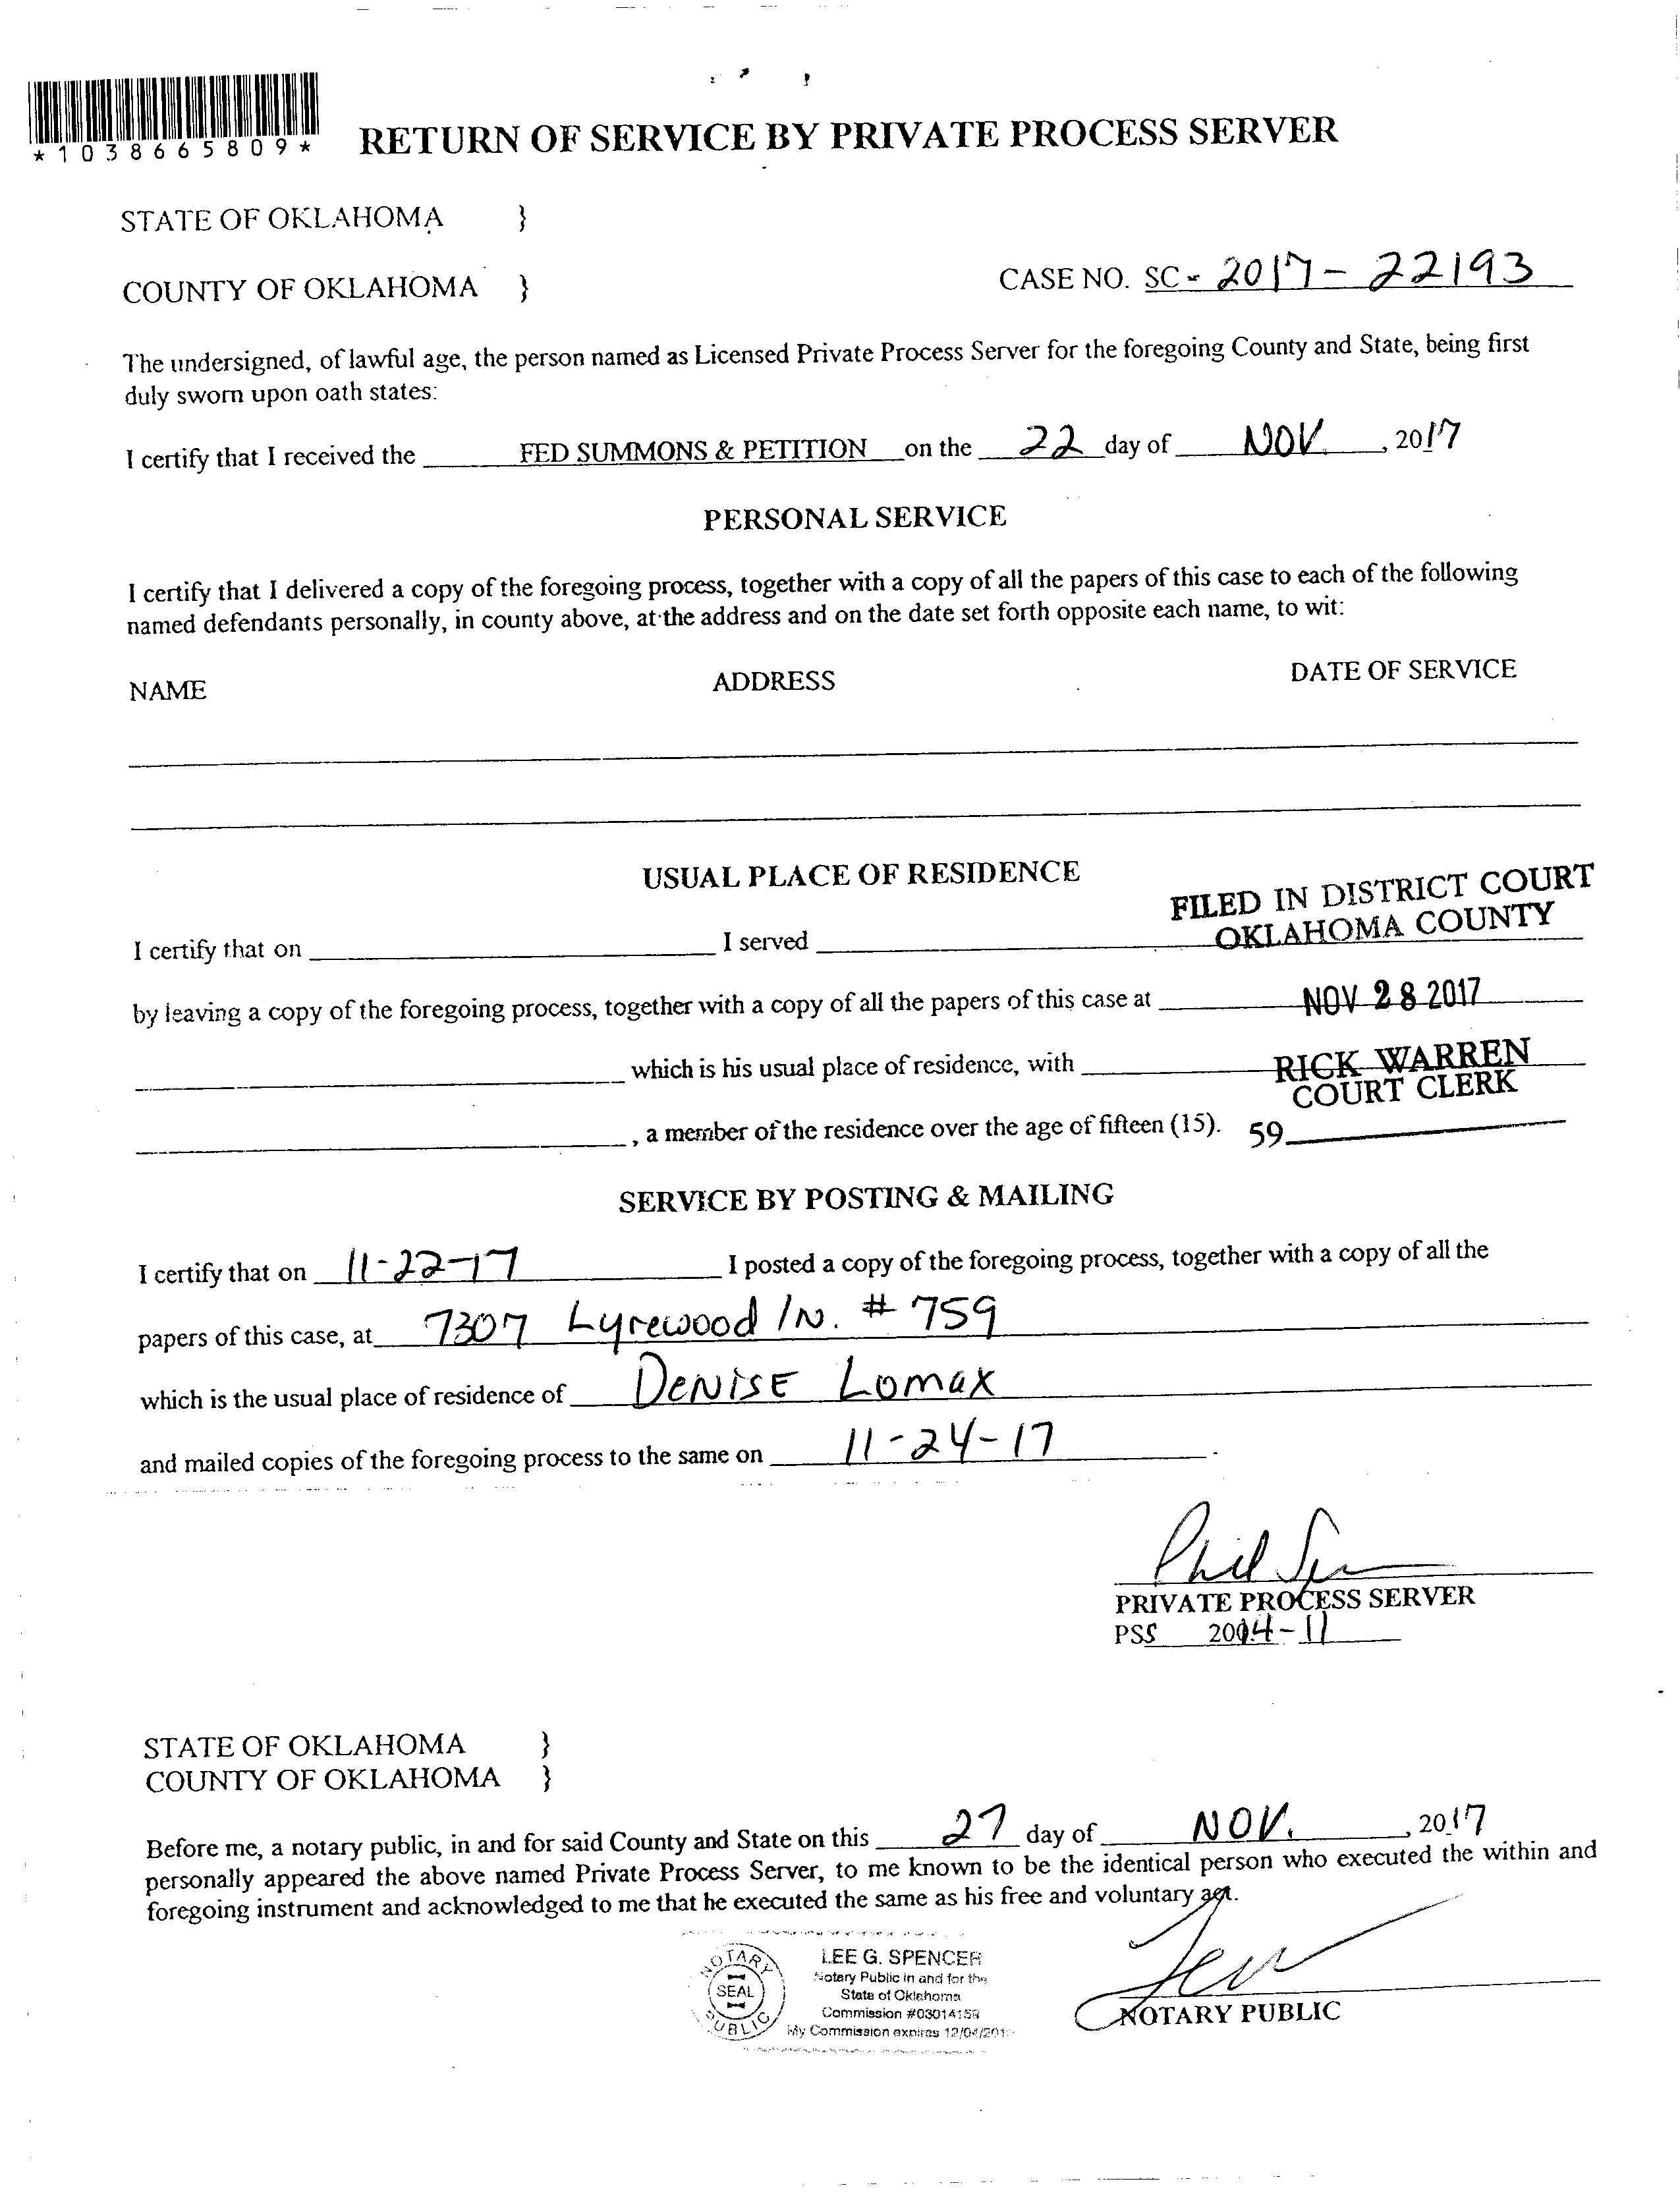 *1038665809*
RETURN OF SERVICE BY PRIVATE PROCESS SERVER
STATE OF OKLAHOMA }
COUNTY OF OKLAHOMA }
CASE NO. SC - 2017 - 22193
The undersigned, of lawful age, the person named as Licensed Private Process Server for the foregoing County and State, being first
duly sworn upon oath states:
I certify that I received the FED SUMMONS & PETITION on the 22 day of NOV. , 2017
PERSONAL SERVICE
I certify that I delivered a copy of the foregoing process, together with a copy of all the papers of this case to each of the following
named defendants personally, in county above, at the address and on the date set forth opposite each name, to wit:
NAME ADDRESS DATE OF SERVICE
USUAL PLACE OF RESIDENCE
FILED IN DISTRICT COURT
OKLAHOMA COUNTY
I certify that on I served
by leaving a copy of the foregoing process, together with a copy of all the papers of this case at
NOV 28 2017
which is his usual place of residence, with
RICK WARREN
COURT CLERK
, a member of the residence over the age of fifteen (15).
59
SERVICE BY POSTING & MAILING
I certify that on 11-22-17 I posted a copy of the foregoing process, together with a copy of all the
papers of this case, at 7307 Lyrewood LN. # 759
which is the usual place of residence of DENISE Lomax
and mailed copies of the foregoing process to the same on 11-24-17 .
Phil
PRIVATE PROCESS SERVER
PSS 2014-11
STATE OF OKLAHOMA }
COUNTY OF OKLAHOMA }
Before me, a notary public, in and for said County and State on this 27 day of NOV. , 2017
personally appeared the above named Private Process Server, to me known to be the identical person who executed the within and
foregoing instrument and acknowledged to me that he executed the same as his free and voluntary act.
NOTARY PUBLIC
SEAL
LEE G. SPENCER
Notary Public in and for the
State of Oklahoma
Commission #03014159
My Commission expires
NOTARY PUBLIC